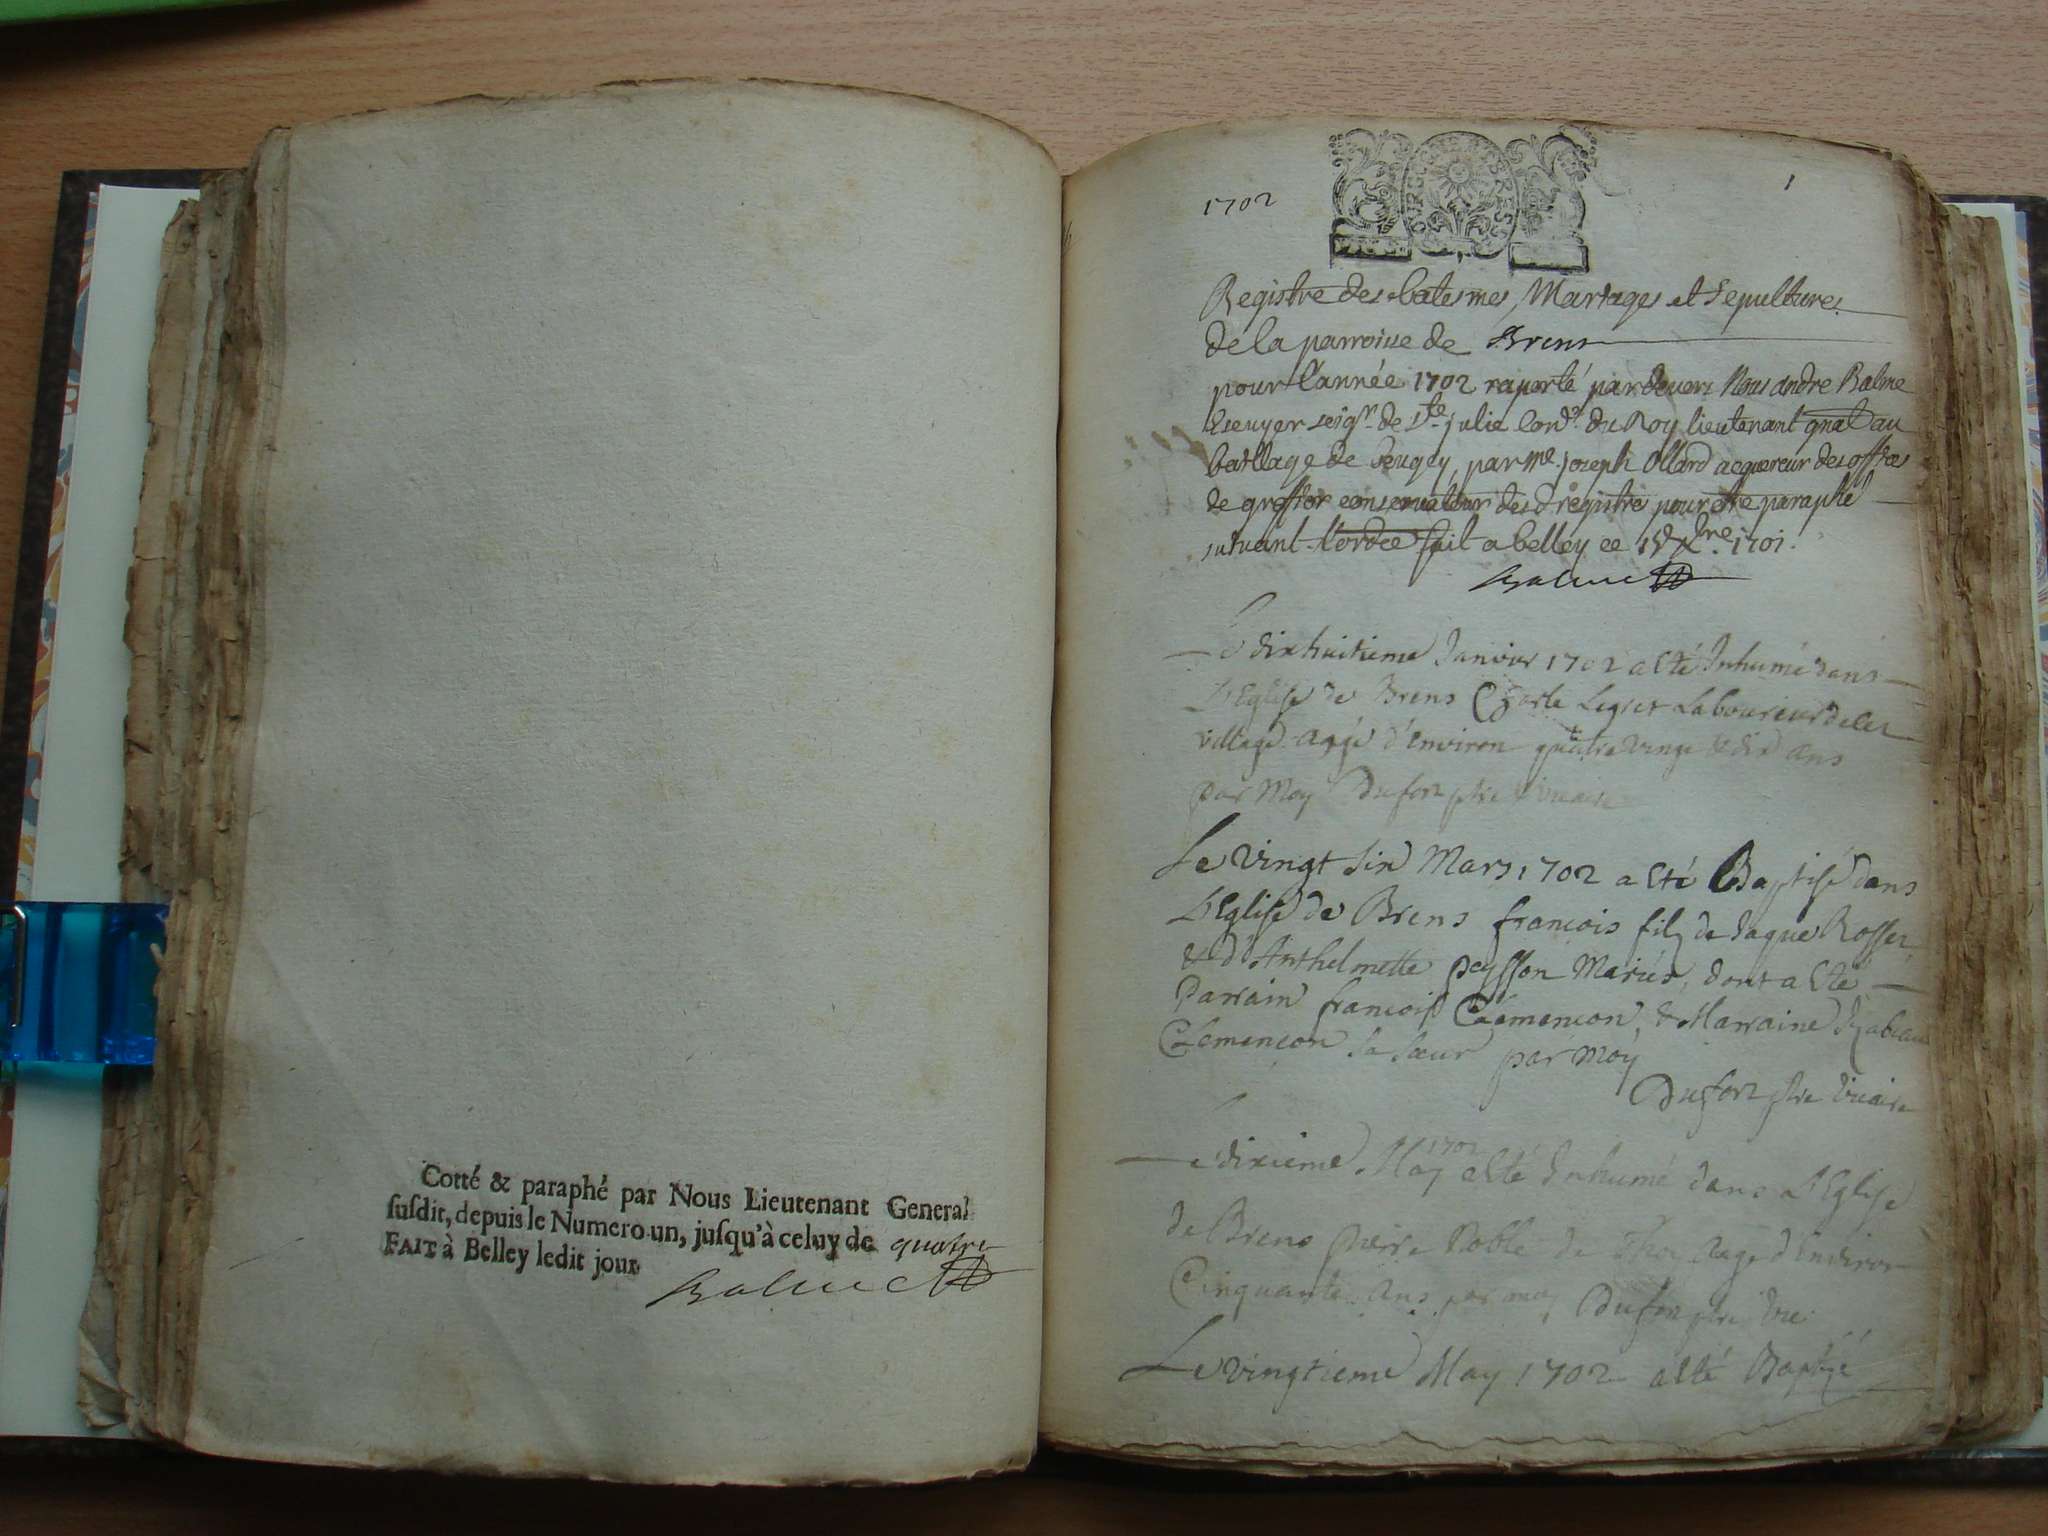 Cotté & paraphé par Nous Lieutenant General
susdit, depuis le Numero un, jusqu'à celuy de quatre
FAIT à Belley ledit jour
Balme
1702
1
Registre des batesmes, Mariages et Sepultures
de la parroisse de Brens
pour l'année 1702 raporté pardevers Nous andre Balme
Escuyer seigr. de Ste julie Con.er du Roy lieutenant gnal au
baillage de beugey, par me. joseph Ollard acquereur des offices
de greffier conservateur desd registre pour estre paraphé
suivant l'ordce fait a belley ce Xbre. 1701.
Balme
Le dixhuitieme Janvier 1702 a esté Inhumé dans
L'Eglise de Brens Charle Laboureur
village aagé d'environ quatre vingt & dix ans
par Moy Dufour ptre & vicaire
Le vingt six Mars 1702 a esté Baptisé dans
L'Eglise de Brens francois filz de Jaque Rosset
& d'Anthelmette peysson Mariés, dont a esté
Parrain francois Clemencon, & Marraine Izabeau
Clemencon sa soeur par Moy
Dufour ptre vicaire
Le dixieme May 1702 a esté Inhumé dans L'Eglise
de Brens pierre Noble de aagé d'environ
Cinquante ans par moy Dufour ptre vic.
Le vingtieme May 1702 a esté Baptizé